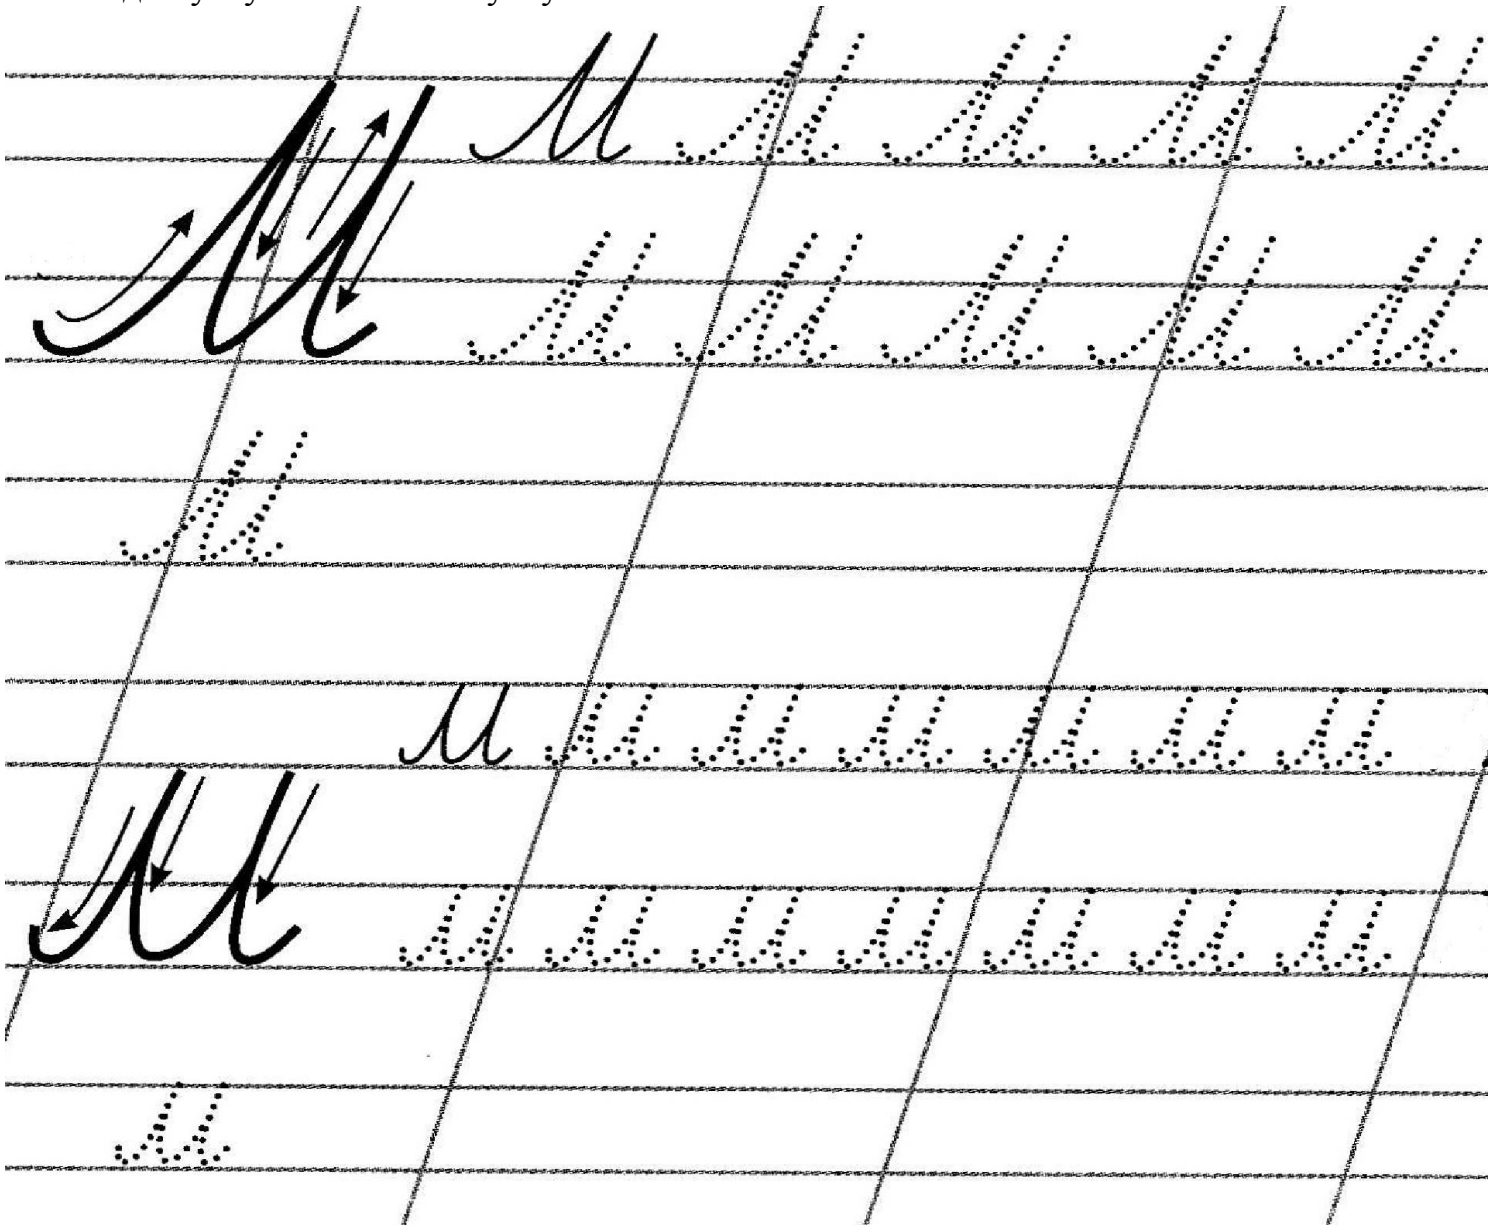 М
М М М М М
М М М М М
М
м
м м м м м м м
м м м м м м м
м